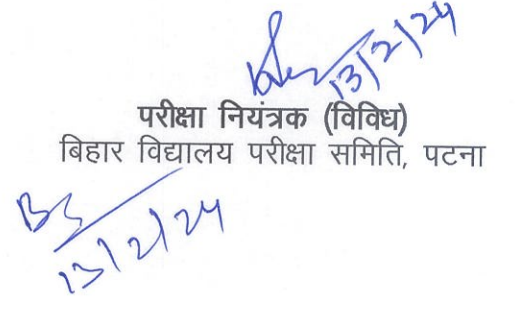 13/2/24
परीक्षा नियंत्रक (विविध)
बिहार विद्यालय परीक्षा समिति, पटना
13/2/24